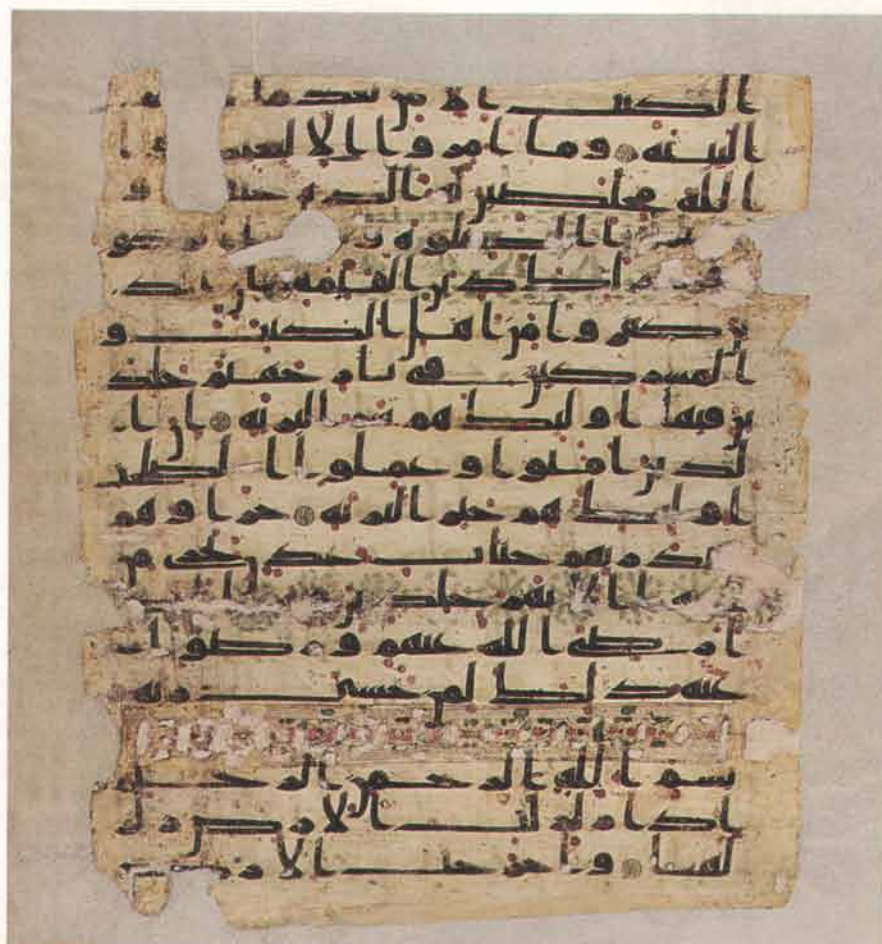 الكتب الا من بعد ما
البينه وما امروا الا ليعبدوا
الله مخلصين له الدين حنفا و
الصلوه
ذلك دين القيمه ان الذ
ين كفروا من اهل الكتب و
المشركين في نار جهنم خلد
ين فيها اوليك هم شر البريه ان ا
لذين امنوا وعملوا الصلحت
اوليك هم خير البريه جزاوهم
عند ربهم جنت عدن تجري من
الانهر خلدين
رضي الله عنهم ورضوا
عنه ذلك لمن خشي ربه
بسم الله الرحمن الرحيم
اذا زلزلت الارض زلزا
لها واخرجت الارض